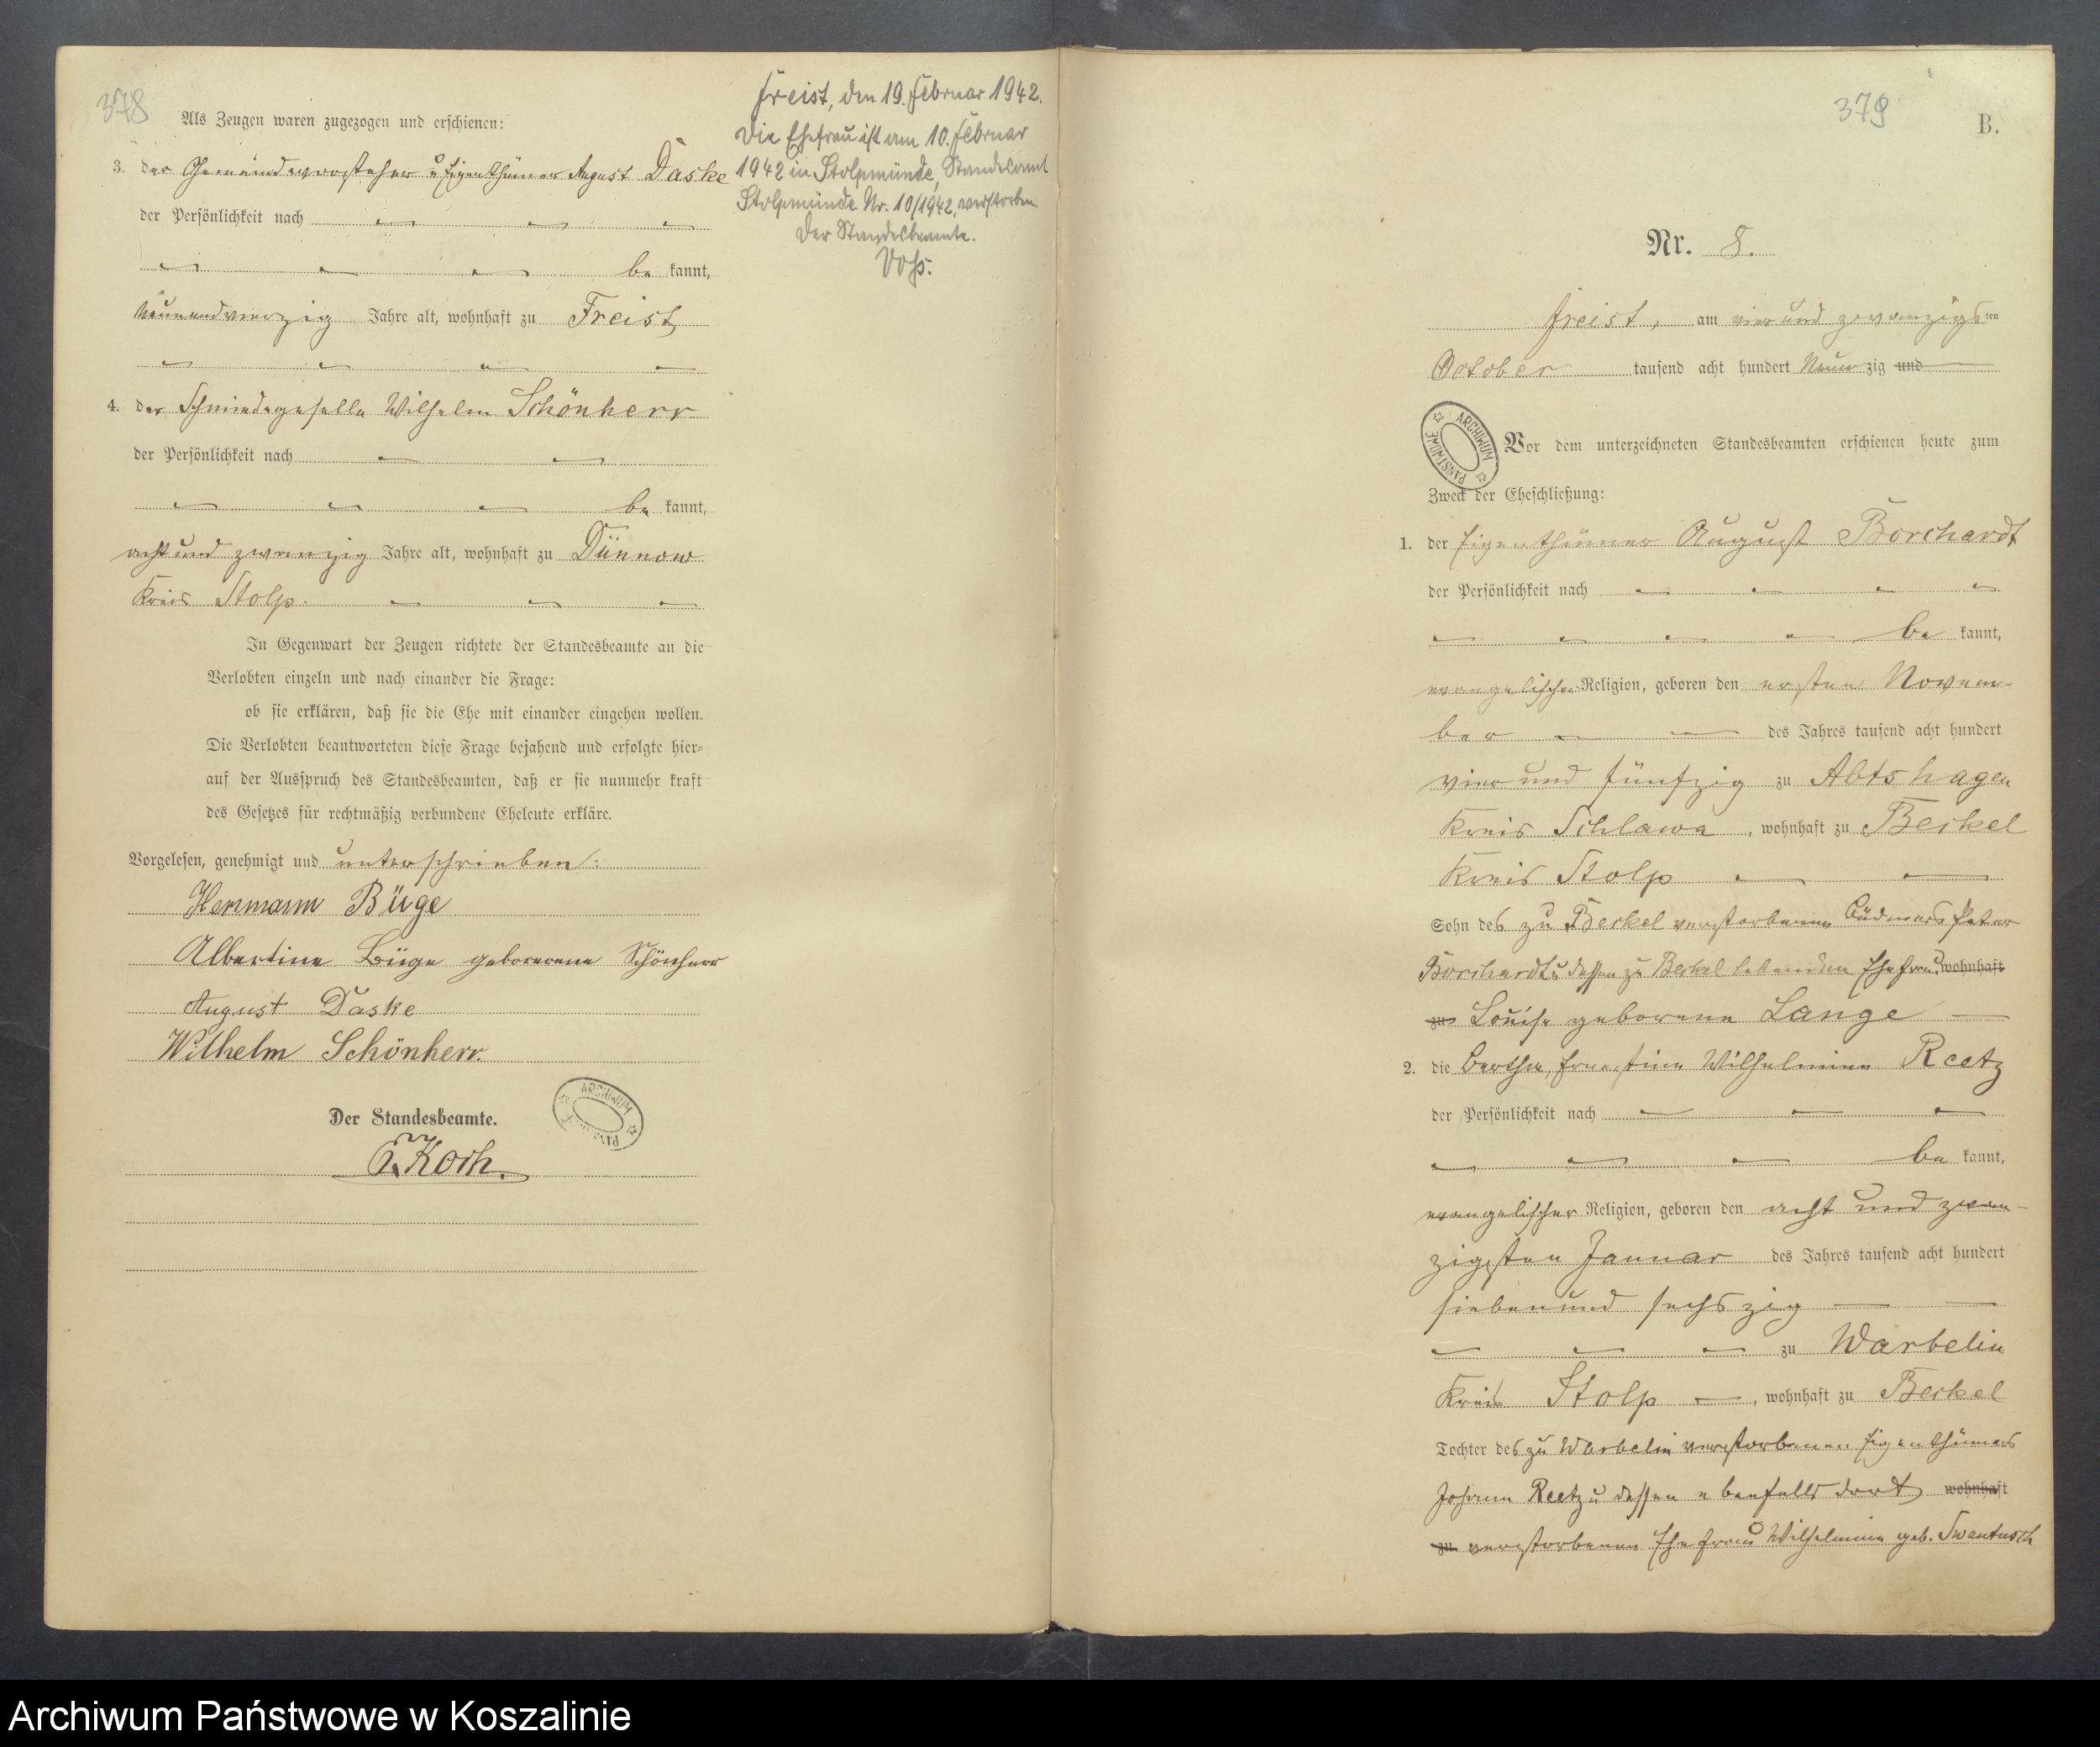 378
Als Zeugen waren zugezogen und erschienen:
3. der Gemeindevorsteher u Eigenthümer August Daske
der Persönlichkeit nach
be kannt,
neunundvierzig Jahre alt, wohnhaft zu Freist
4. der Schmiedegeselle Wilhelm Schönherr
der Persönlichkeit nach
be kannt,
acht und zwanzig Jahre alt, wohnhaft zu Dünnow
Kreis Stolp.
In Gegenwart der Zeugen richtete der Standesbeamte an die
Verlobten einzeln und nach einander die Frage:
ob sie erklären, daß sie die Ehe mit einander eingehen wollen.
Die Verlobten beantworteten diese Frage bejahend und erfolgte hier-
auf der Ausspruch des Standesbeamten, daß er sie nunmehr kraft
des Gesetzes für rechtmäßig verbundene Eheleute erkläre.
Vorgelesen, genehmigt und unterschrieben:
Hermann Büge
Albertine Büge geborerene Schönherr
August Daske
Wilhelm Schönherr.
Der Standesbeamte.
Koch.
ARCHIWUM
Freist, den 19. Februar 1942.
Die Ehefrau ist am 10. Februar
1942 in Stolpmünde, Standesamt
Stolpmünde Nr. 10/1942, verstorben.
Der Standesbeamte.
Voß.
379
B.
Nr. 8.
Freist, am vier und zwanzigs ten
October tausend acht hundert Neun zig und
ARCHIWUM PAŃSTWOWE
Vor dem unterzeichneten Standesbeamten erschienen heute zum
Zweck der Eheschließung:
1. der Eigenthümer August Borchardt
der Persönlichkeit nach
be kannt,
evangelischer Religion, geboren den ersten Novem-
ber des Jahres tausend acht hundert
vier und fünfzig zu Abtshagen
Kreis Schlawe, wohnhaft zu Beckel
Kreis Stolp
Sohn des zu Beckel verstorbenen Büdners Peter
Borchardt u dessen zu Beckel lebenden Ehefrau wohnhaft
zu Louise geborene Lange
2. die Bertha, Ernestine Wilhelmine Reetz
der Persönlichkeit nach
be kannt,
evangelischer Religion, geboren den acht und zwan-
zigsten Januar des Jahres tausend acht hundert
sieben und sechszig
zu Warbelin
Kreis Stolp, wohnhaft zu Beckel
Tochter des zu Warbelin verstorbenen Eigenthümers
Johann Reetz u dessen ebenfalls dort wohnhaft
zu verstorbenen Ehefrau Wilhelmine geb. Swantusch
Archiwum Państwowe w Koszalinie